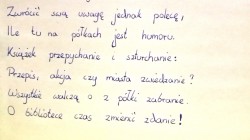 Zwrócić swą uwagę jednak polecę,
Ile tu na półkach jest humoru.
Książek przepychanie i szturchanie:
Przepis, akcja czy miasta zwiedzanie?
Wszystkie walczą o z półki zabranie.
O bibliotece czas zmienić zdanie!